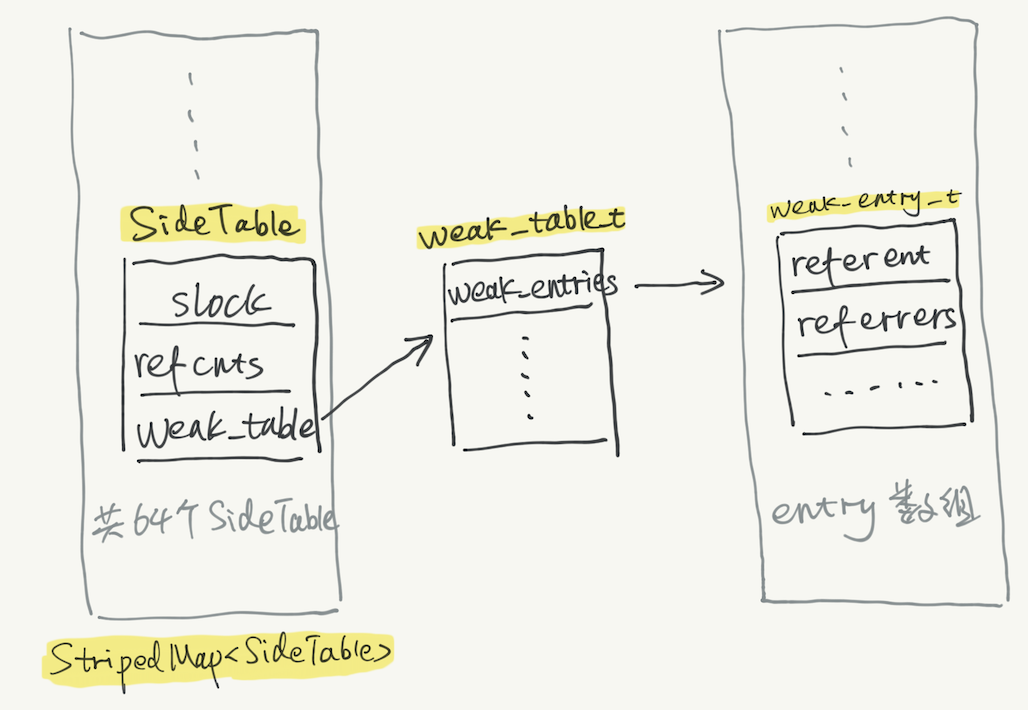 SideTable
slock
refcnts
weak_table
共64个SideTable
StripedMap<SideTable>
weak_table_t
weak_entries
weak_entry_t
referent
referrers
entry 数组